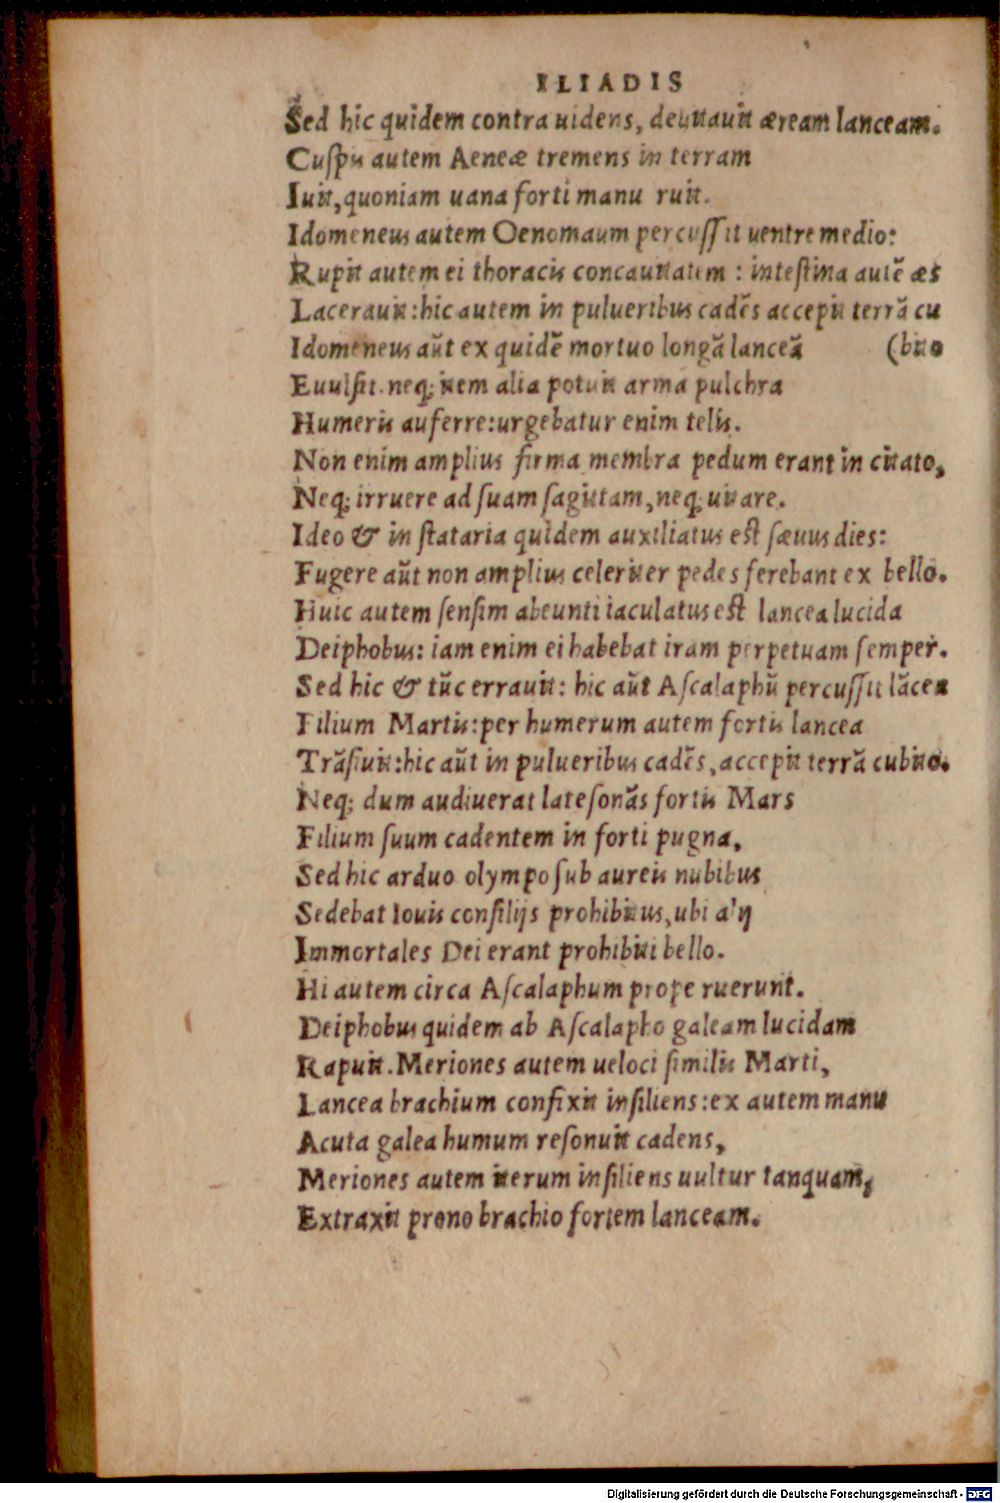 ILIADIS
Sed hic quidem contra uidens, deuitauit æream lanceam.
Cuſpis autem Aeneæ tremens in terram
Iuit, quoniam uana forti manu ruit.
Idomeneus autem Oenomaum percuſſit uentre medio:
Rupit autem ei thoracis concauitatem: inteſtina autẽ æs
Lacerauit: hic autem in pulueribus cadẽs accepit terrã cu
Idomeneus aũt ex quidẽ mortuo longã lanceã (bito
Euulſit. neq; item alia potuit arma pulchra
Humeris auferre: urgebatur enim telis.
Non enim amplius firma membra pedum erant in citato,
Neq; irruere ad ſuam ſagittam, neq; uitare.
Ideo & in ſtataria quidem auxiliatus eſt ſæuus dies:
Fugere aũt non amplius celeriter pedes ferebant ex bello.
Huic autem ſenſim abeunti iaculatus eſt lancea lucida
Deiphobus: iam enim ei habebat iram perpetuam ſemper.
Sed hic & tũc errauit: hic aũt Aſcalaphũ percuſſit lãcea
Filium Martis: per humerum autem fortis lancea
Trãſiuit: hic aũt in pulueribus cadẽs, accepit terrã cubito.
Neq; dum audiuerat lateſonãs fortis Mars
Filium ſuum cadentem in forti pugna,
Sed hic arduo olympo ſub aureis nubibus
Sedebat Iouis conſilijs prohibitus, ubi alij
Immortales Dei erant prohibiti bello.
Hi autem circa Aſcalaphum prope ruerunt.
Deiphobus quidem ab Aſcalapho galeam lucidam
Rapuit. Meriones autem ueloci ſimilis Marti,
Lancea brachium confixit inſiliens: ex autem manu
Acuta galea humum reſonuit cadens,
Meriones autem iterum inſiliens uultur tanquam,
Extraxit prono brachio fortem lanceam.
Digitalisierung gefördert durch die Deutsche Forschungsgemeinschaft - DFG